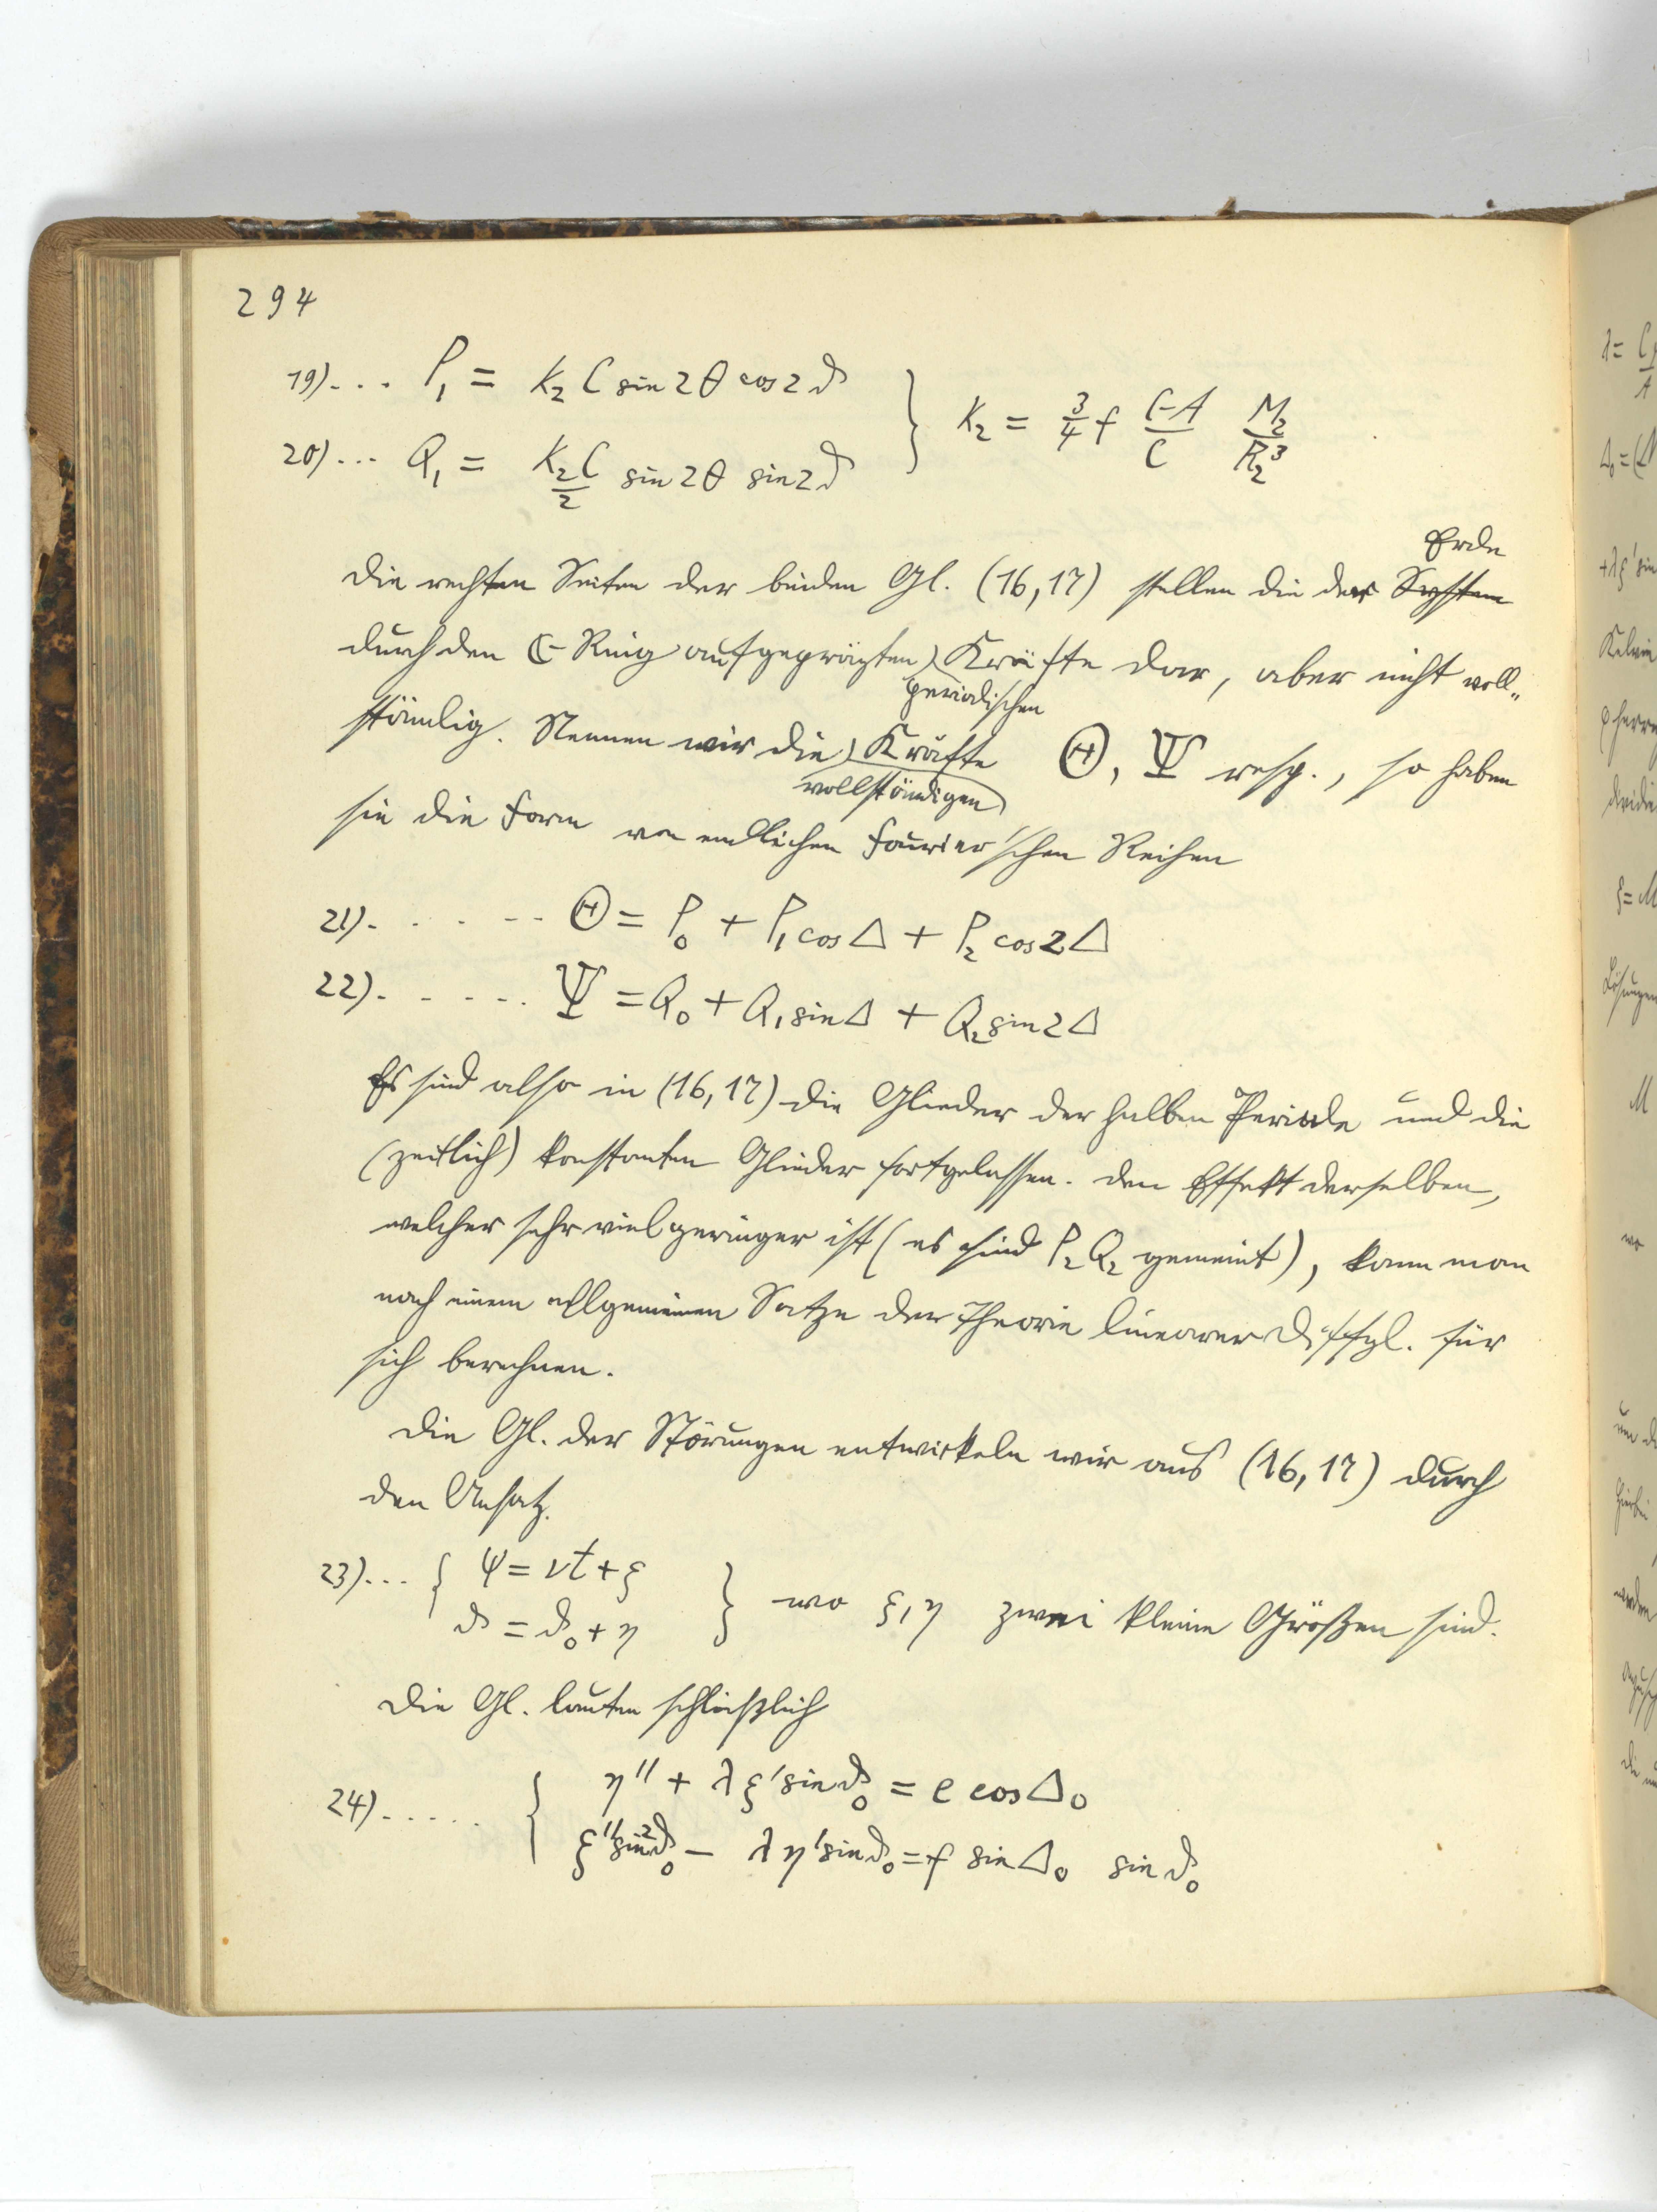 294
19)... P₁ = K₂ C sin 2θ cos 2ϑ
20)... Q₁ = K₂C/2 sin 2θ sin 2ϑ } K₂ = 3/4 f (C-A)/C M₂/R₂³
Erde
Die rechten Seiten der beiden Gl. (16,17) stellen die der System
durch den ☾-Ring aufgeprägten Kräfte dar, aber nicht voll-
periodischen
ständig. Nennen wir die Kräfte Θ, Ψ resp., so haben
vollständigen
sie die Form von endlichen Fourier'schen Reihen
21)..... Θ = P₀ + P₁ cos Δ + P₂ cos 2Δ
22)..... Ψ = Q₀ + Q₁ sin Δ + Q₂ sin 2Δ
Es sind also in (16,17) die Glieder der halben Periode und die
(zeitlich) konstanten Glieder fortgelassen. Den Effekt derselben,
welcher sehr viel geringer ist (es sind P₂ Q₂ gemeint), kann man
nach einem allgemeinen Satze der Theorie linearer Diffgl. für
sich berechnen.
Die Gl. der Störungen entwickeln wir aus (16,17) durch
den Ansatz.
23)... { ψ = νt + ξ
ϑ = ϑ₀ + η } wo ξ, η zwei kleine Größen sind.
Die Gl. lauten schließlich
24)..... { η'' + λ ξ' sin ϑ₀ = e cos Δ₀
ξ'' sin² ϑ₀ − λ η' sin ϑ₀ = f sin Δ₀ sin ϑ₀